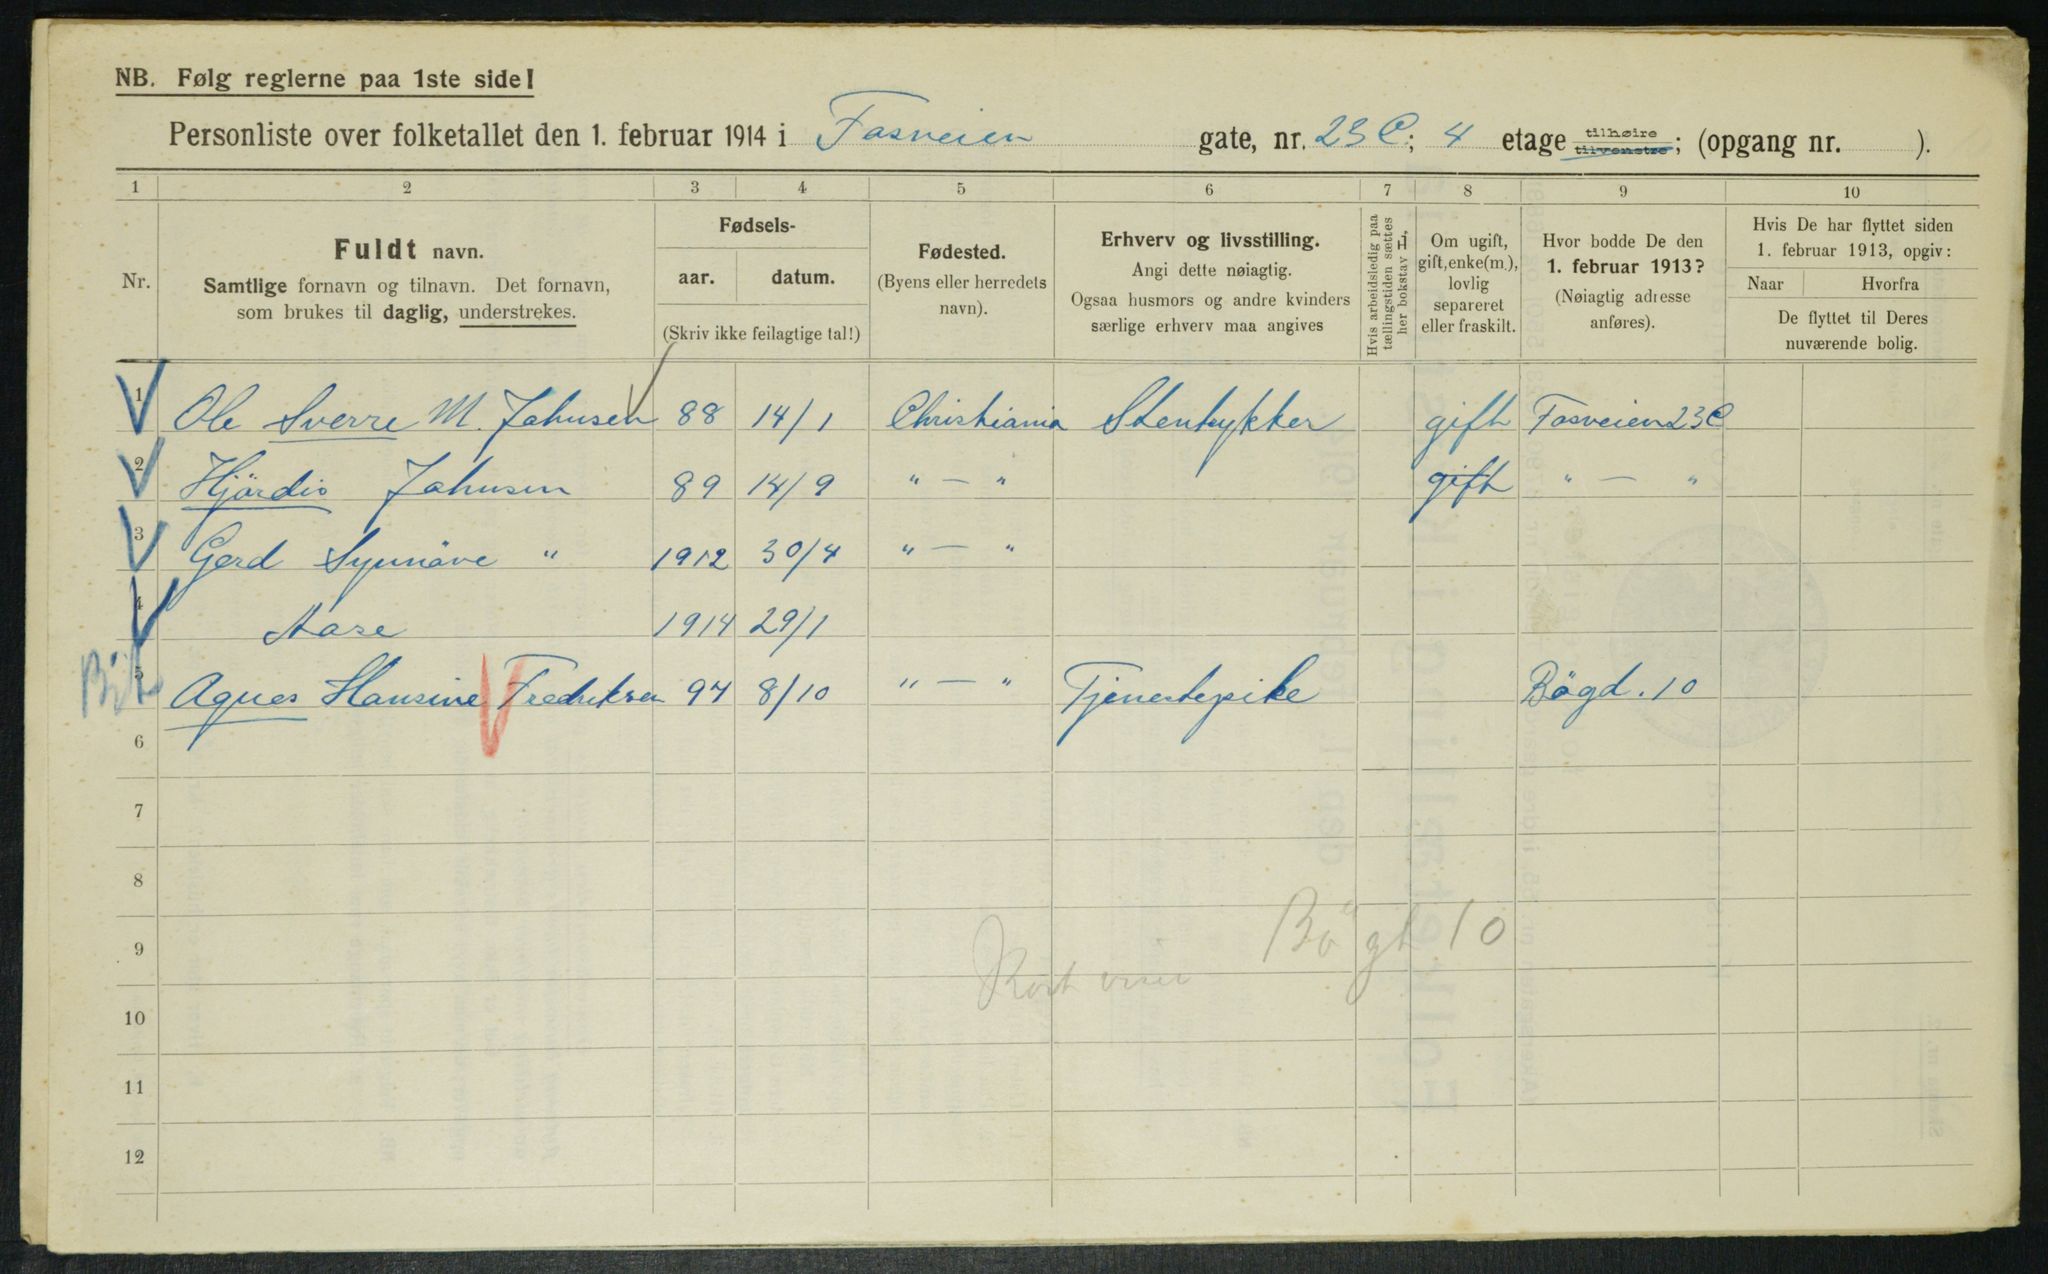 NB. Følg reglerne paa 1ste side!
Personliste over folketallet den 1. februar 1914 i Fosveien gate, nr. 23 C; 4 etage tilhøire tilvenstre; (opgang nr. ).
1 2 3 4 5 6 7 8 9 10
Nr.
Fuldt navn.
Samtlige fornavn og tilnavn. Det fornavn,
som brukes til daglig, understrekes.
Fødsels-
aar. datum.
(Skriv ikke feilagtige tal!)
Fødested.
(Byens eller herredets
navn).
Erhverv og livsstilling.
Angi dette nøiagtig.
Ogsaa husmors og andre kvinders
særlige erhverv maa angives
Hvis arbeidsledig paa
tællingstiden sættes
her bokstav L,
Om ugift,
gift, enke(m.),
lovlig
separeret
eller fraskilt.
Hvor bodde De den
1. februar 1913?
(Nøiagtig adresse
anføres).
Hvis De har flyttet siden
1. februar 1913, opgiv:
Naar Hvorfra
De flyttet til Deres
nuværende bolig.
1 Ole Sverre M. Johnsen 88 14/1 Christiania Stentrykker gift Fosveien 23 C
2 Hjördis Johnsen 89 14/9 " — " gift " — "
3 Gerd Synnöve " 1912 30/4 " — "
4 Aase 1914 29/1
5 Agnes Hansine Fredriksen 97 8/10 " — " Tjenestepike Bögd. 10
6
7
8
9 Bögt 10
10
11
12